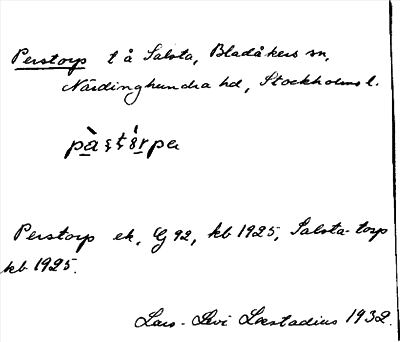 Perstorp t å Salsta, Bladåkers sn,
Närdinghundra hd, Stockholms l.
Perstorp ek, G 92, kb 1925, Salsta-torp
kb 1925.
Lars-Levi Læstadius 1932.